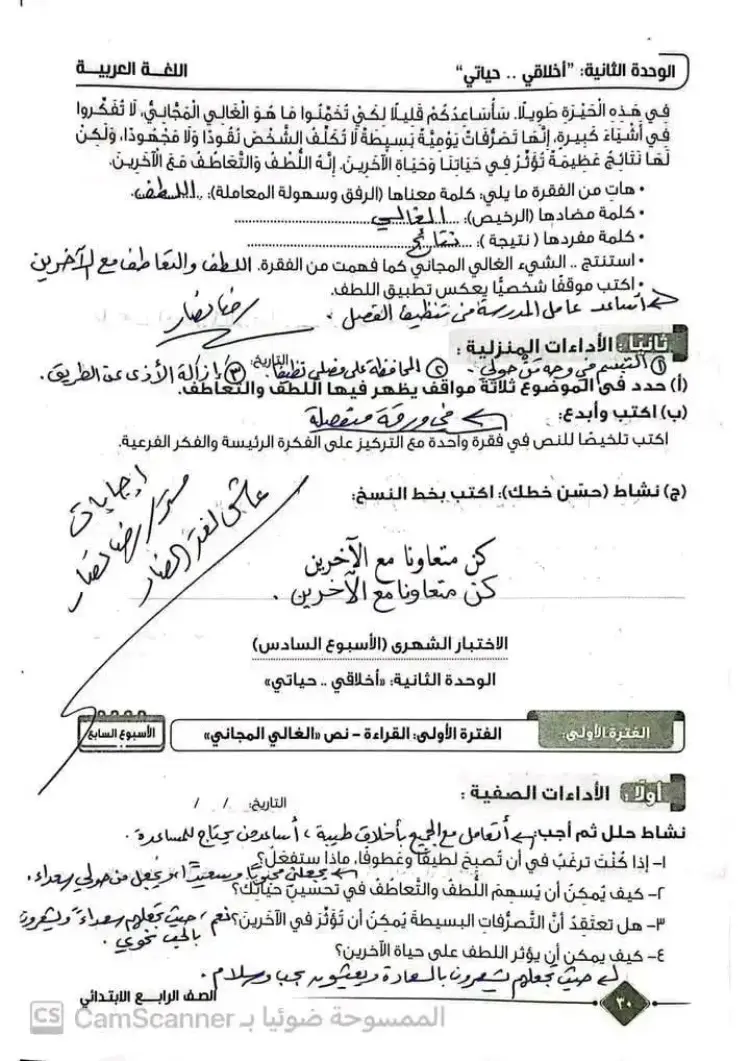 الوحدة الثانية: "أخلاقي .. حياتي"
اللغة العربية
في هذه الحَيْرَةِ طَوِيلًا. سَأُسَاعِدُكُمْ قَلِيلًا لِكَيْ تُخَمِّنُوا مَا هُوَ الْغَالِي الْمَجَّانِيُّ، لَا تُفَكِّرُوا
فِي أَشْيَاءَ كَبِيرَةٍ، إِنَّهَا تَصَرُّفَاتٌ يَوْمِيَّةٌ بَسِيطَةٌ لَا تُكَلِّفُ الشَّخْصَ نُقُودًا وَلَا مَجْهُودًا، وَلَكِنْ
لَهَا نَتَائِجُ عَظِيمَةٌ تُؤَثِّرُ فِي حَيَاتِنَا وَحَيَاةِ الْآخَرِينَ. إِنَّهُ اللُّطْفُ وَالتَّعَاطُفُ مَعَ الْآخَرِينَ.
• هات من الفقرة ما يلي: كلمة معناها (الرفق وسهولة المعاملة): اللطف
• كلمة مضادها (الرخيص): الغالي
• كلمة مفردها (نتيجة): نتائج
• استنتج .. الشيء الغالي المجاني كما فهمت من الفقرة. اللطف والتعاطف مع الآخرين
• اكتب موقفًا شخصيًا يعكس تطبيق اللطف.
أساعد عامل المدرسة من تنظيف الفصل . رضا نصار
ثانيًا: الأداءات المنزلية:
① التبسم في وجه من حولي. ② المحافظة على فصلي نظيفًا. ③ إزالة الأذى عن الطريق.
التاريخ:
(أ) حدد في الموضوع ثلاثة مواقف يظهر فيها اللطف والتعاطف.
(ب) اكتب وأبدع: في ورقة منفصلة
اكتب تلخيصًا للنص في فقرة واحدة مع التركيز على الفكرة الرئيسة والفكر الفرعية.
(ج) نشاط (حسّن خطك): اكتب بخط النسخ:
إجابات
رضا نصار
عاشق لغة الضاد
كن متعاونا مع الآخرين
كن متعاونا مع الآخرين .
الاختبار الشهري (الأسبوع السادس)
الوحدة الثانية: «أخلاقي .. حياتي»
الفترة الأولى:
الفترة الأولى: القراءة - نص «الغالي المجاني»
الأسبوع السابع
أولًا: الأداءات الصفية:
التاريخ: / /
نشاط حلل ثم أجب: أتعامل مع الجميع بأخلاق طيبة، أساعد من يحتاج للمساعدة.
١- إذا كُنْتَ ترغَبُ في أن تُصبحَ لطيفًا وعَطوفًا، ماذا ستفعَلُ؟
يجعلني محبوبًا وسعيدًا، ويجعل من حولي سعداء.
٢- كيف يُمكِنُ أن يُسهِمَ اللُّطفُ والتَّعاطُفُ في تحسينِ حياتِك؟
٣- هل تعتَقِدُ أنَّ التَّصرُّفاتِ البسيطةَ يُمكِنُ أن تُؤثِّرَ في الآخَرينَ؟ نعم، حيث تجعلهم سعداء ويشعرون
بالحب نحوي.
٤- كيف يمكن أن يؤثر اللطف على حياة الآخرين؟
حيث تجعلهم يشعرون بالسعادة ويعيشون بحب وسلام.
٣٠
الصف الرابع الابتدائي
CS CamScanner الممسوحة ضوئيا بـ